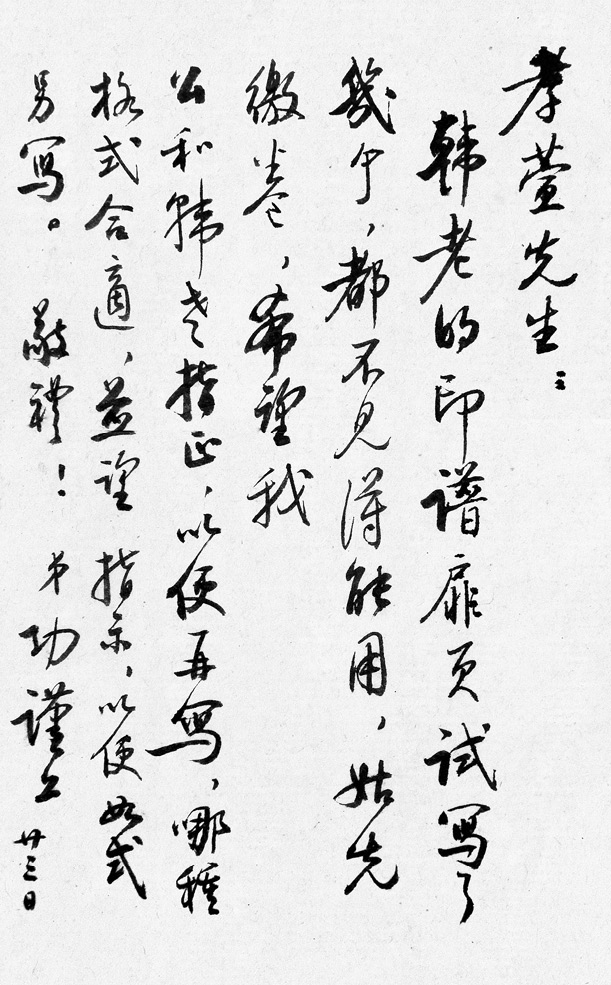 孝萱先生：
韓老的印譜扉页試寫了
幾个，都不見得能用，姑先
繳卷，希望我
公和韓老指正，以便再寫，哪種
格式合適，並望指示，以便如式
另寫。敬禮！弟功謹上廿三日